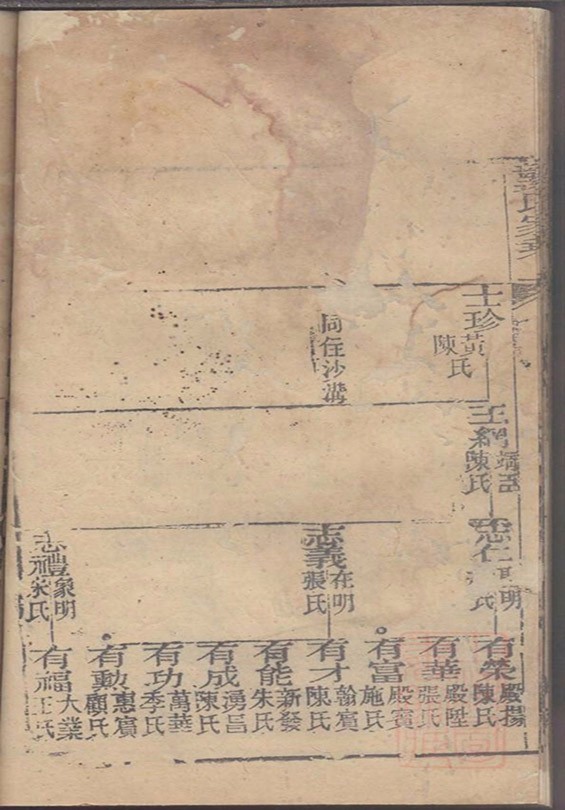 士珍
黃氏
陳氏
同住沙溝
王綱
陳氏
志仁
明
氏
志義
在明
張氏
志禮
象明
朱氏
有榮
殿揚
陳氏
有華
殿陞
張氏
有富
殿賓
施氏
有才
翰賓
陳氏
有能
新發
朱氏
有成
湧昌
陳氏
有功
萬華
季氏
有勳
惠賓
顧氏
有福
大業
王氏